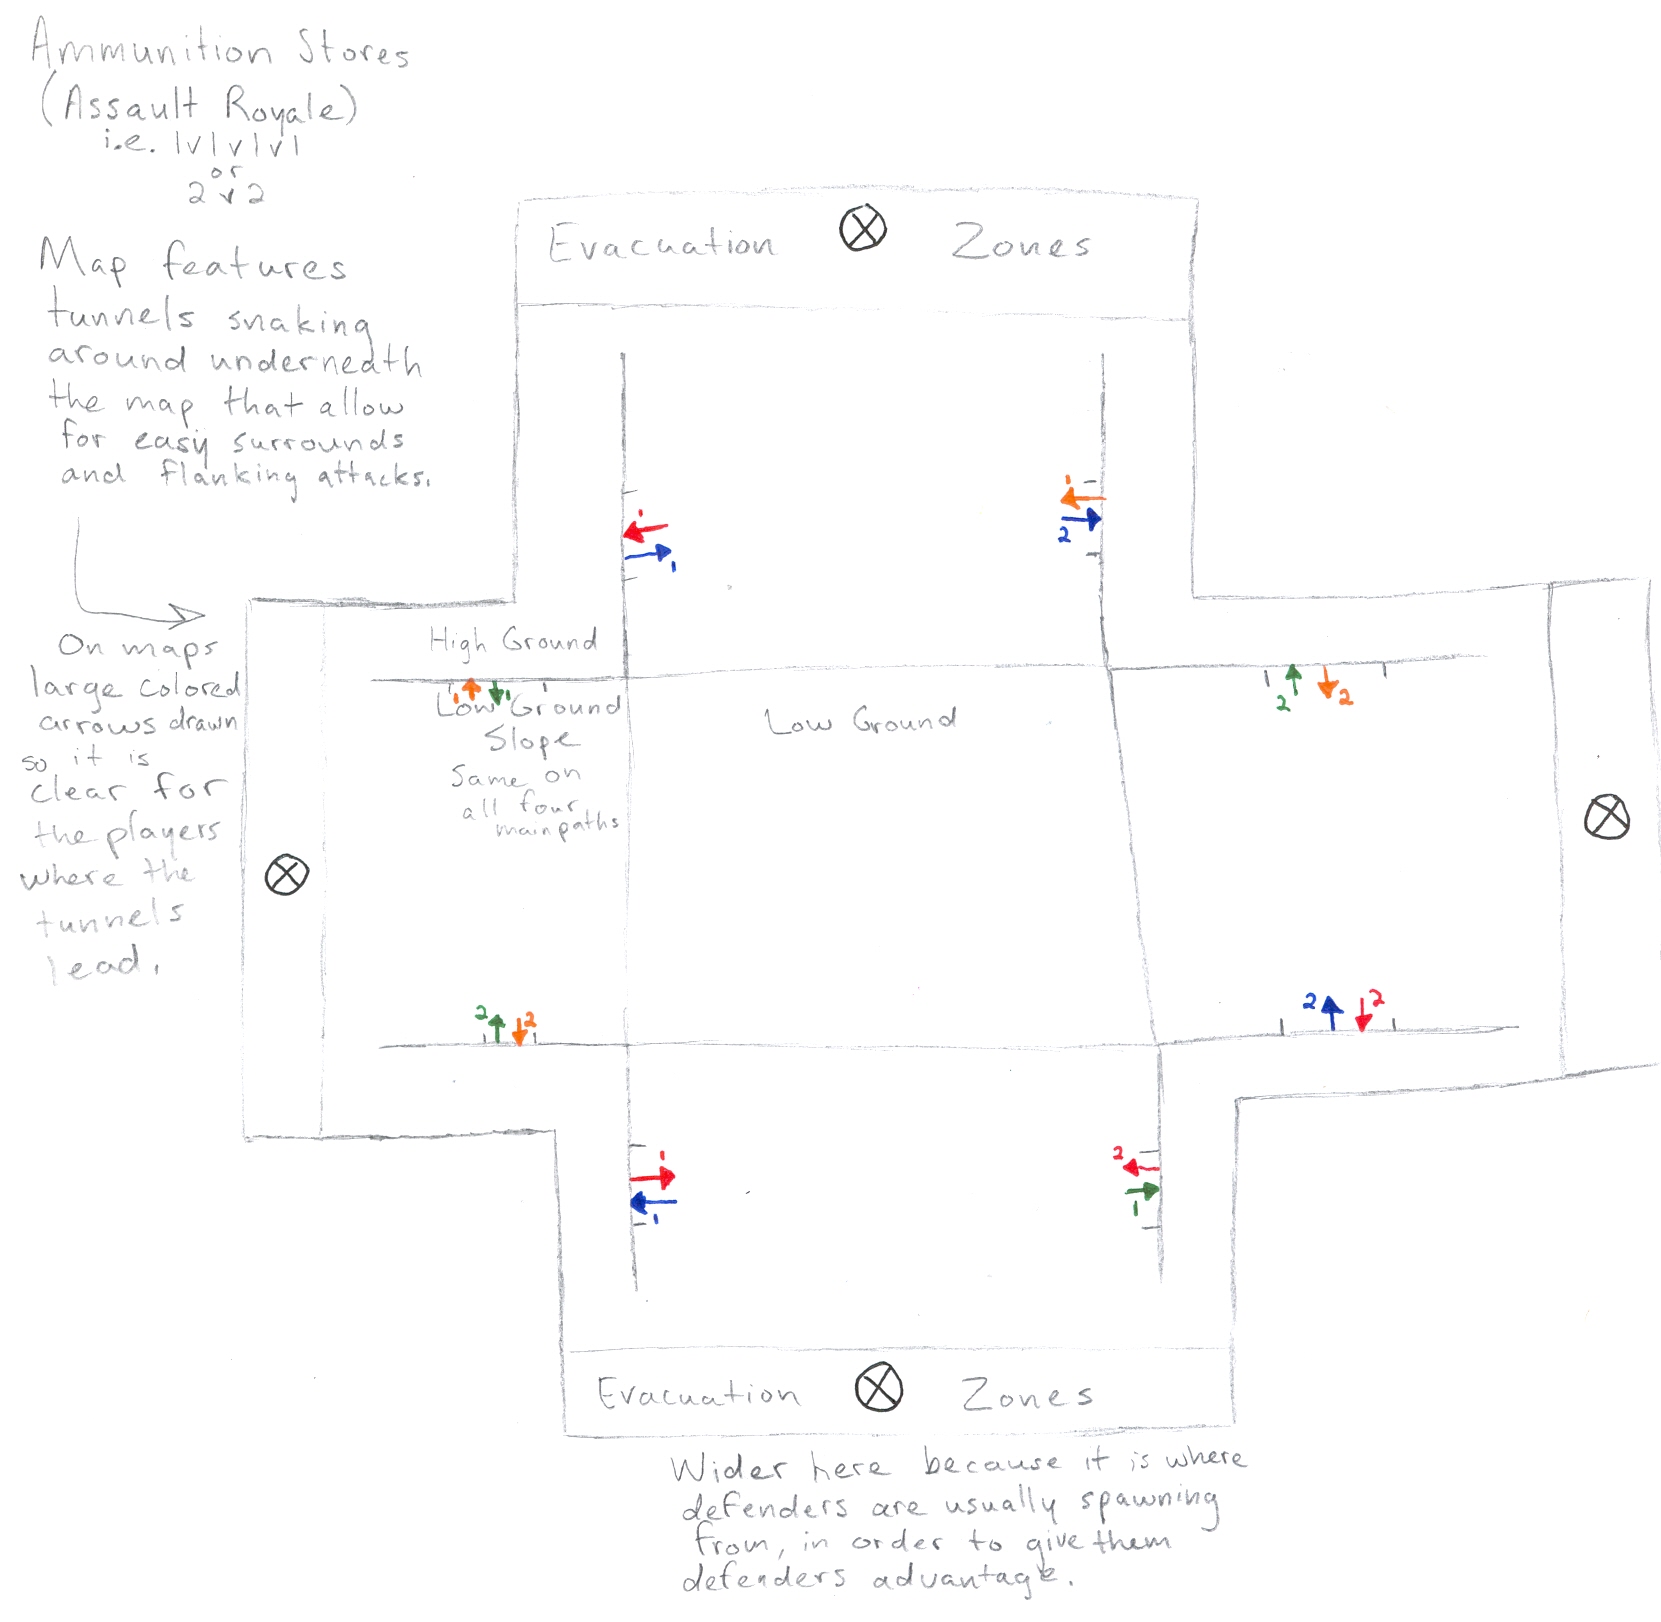 Ammunition Stores
(Assault Royale)
i.e. 1v1v1v1
or
2v2
Map features
tunnels snaking
around underneath
the map that allow
for easy surrounds
and flanking attacks.
On maps
large colored
arrows drawn
so it is
clear for
the players
where the
tunnels
lead.
Evacuation Zones
1
1
1
2
High Ground
1 1
Low Ground
Slope
Same on
all four
main paths
Low Ground
2 2
2 2
2 2
1
1
2
1
Evacuation Zones
Wider here because it is where
defenders are usually spawning
from, in order to give them
defenders advantage.